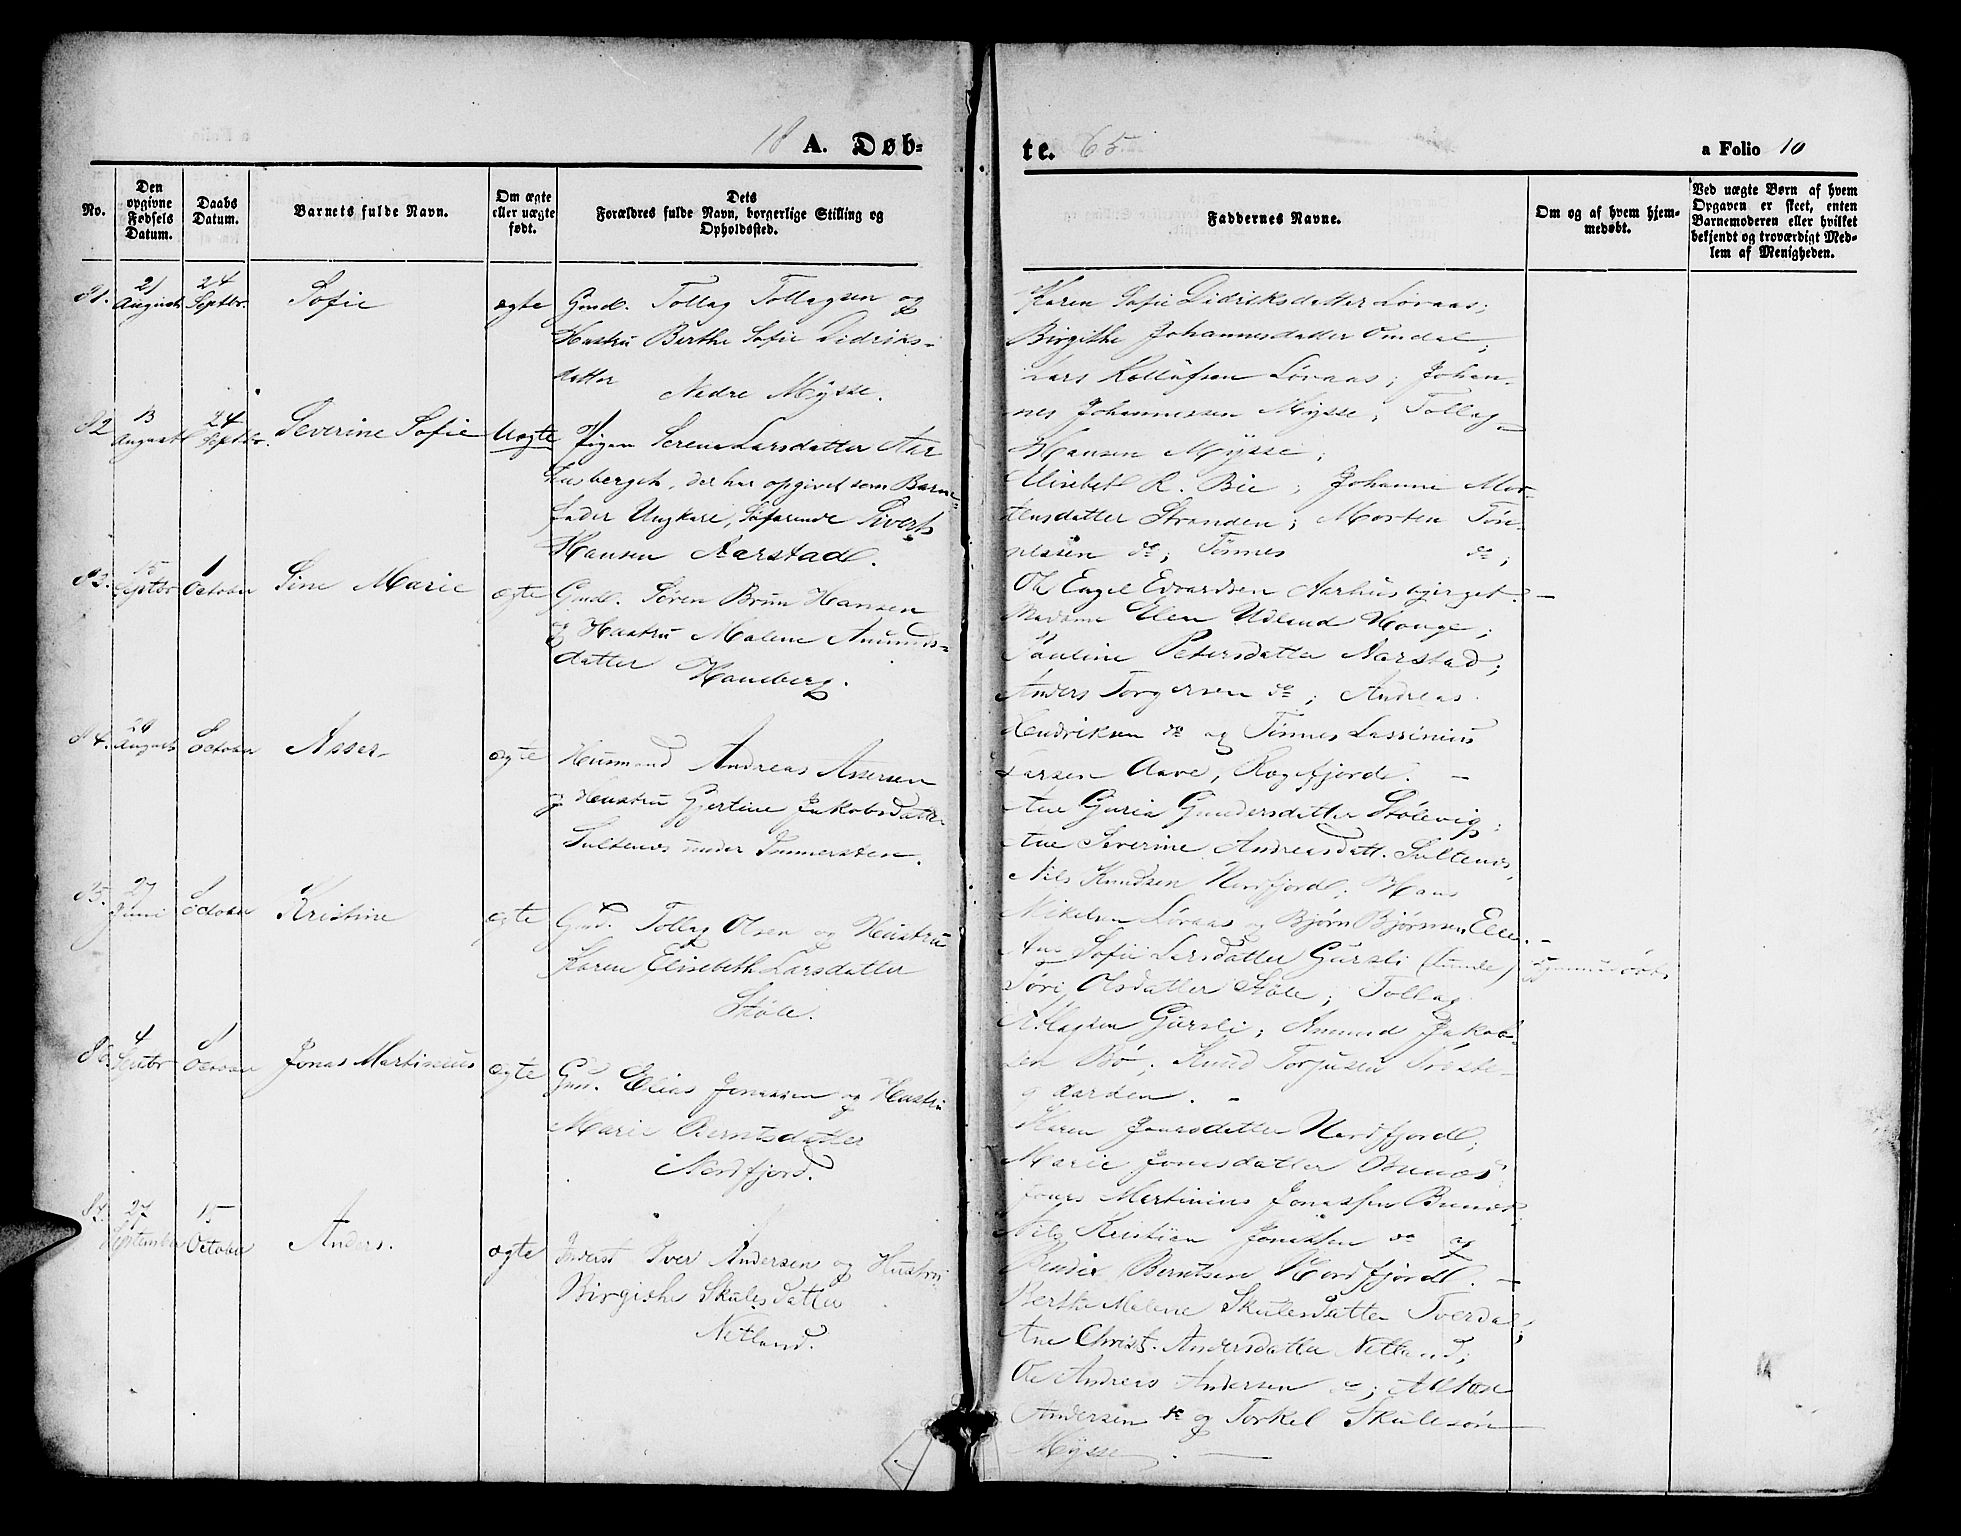 18 A. Døb-
te. 65.
a Folio 10
No.
Den
opgivne
Fødsels
Datum.
Daabs
Datum.
Barnets fulde Navn.
Om ægte
eller uægte
født.
Dets
Forældres fulde Navn, borgerlige Stilling og
Opholdssted.
Faddernes Navne.
Om og af hvem hjem-
medøbt.
Ved uægte Børn af hvem
Opgaven er skeet, enten
Barnemoderen eller hvilket
bekjendt og troværdigt Med-
lem af Menigheden.
81.
21
August
24
Septbr.
Sofie
ægte
Gmd. Tollag Tollagsen og
Hustru Berthe Sofie Didriks-
datter
Nedre Mysse.
Karen Sofie Didriksdatter Løvaas;
Birgithe Johannesdatter Omdal;
Lars Rolløfsen Løvaas; Johan-
nes Johannessen Mysse; Tollag
Hansen Mysse;
82
13
August
24
Septbr.
Severine Sofie
Uægte
Pigen Serene Larsdatter Aar
husberget, der har opgivet som Barne-
fader Ungkarl, Søfarende Sivert
Hansen Aarstad.
Elisebeth R. Bie; Johanne Mor-
tensdatter Stranden; Morten Tøn-
nessen do; Tønnes do;
Ole Engel Edvardsen Aarhusbjerget. —
83.
15
Septbr
1
October
Sine Marie
ægte
Gmd. Søren Brun Hansen
og Hustru Malene Amunds-
datter Haneberg.
Madame Elen Udland Hauge;
Pauline Petersdatter Aarstad;
Anders Torgersen do; Andreas
Hendriksen do og Tønnes Lassenius
Larsen Aave, Rægefjord. —
84.
29
August
8
October
Asser
ægte
Husmand Andreas Assersen
og Hustru Gjertine Jakobsdatter
Sultenes under Immersten.
Ane Guria Gundersdatter Stølevig;
Ane Severine Andreasdatt. Sultenes,
Nils Knudsen Nordfjord; Hans
Mikelsen Løvaas og Bjørn Bjørnsen
85.
27
Juni
8
October
Kristine
ægte
Gmd. Tollag Olsen og Hustru
Karen Elisebeth Larsdatter
Støle.
Ane Sofie Larsdatter Gursli (Lunde)
Tøri Olsdatter Støle; Tollag
Gursli; Amund Jakob-
sen Bø; Knud Torjusen Præste-
gaarden. —
86.
4
Septbr
8
October
Jonas Martinius
ægte
Gm. Elias Jonassen og Hustru
Marie Berntsdatter
Nordfjord.
Karen Jonasdatter Nordfjord;
Marie Jonasdatter
Jonas Martinius Jonassen
Nils Kristian Jonassen do og
Bendix Berntsen Nordfjord. —
87.
27
September
15
October
Anders.
ægte
Inderst Iver Andersen og Hustru
Birgithe Skulesdatter
Netland.
Berthe Malene Skulesdatter Tverdal;
Ane Christ. Andersdatter Netland;
Ole Andreas Andersen do;
Andersen do og Torkel Skulesøn
Mysse. —